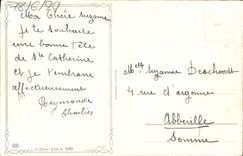 78/6/99
Ma Chère Suzanne
Je te souhaite
une bonne fête
de Ste Catherine
et je t'embrasse
affectueusement
Raymonde
Charlies
Melle Suzanne Deschoodt
4 rue d'argonne
Abbeville
Somme